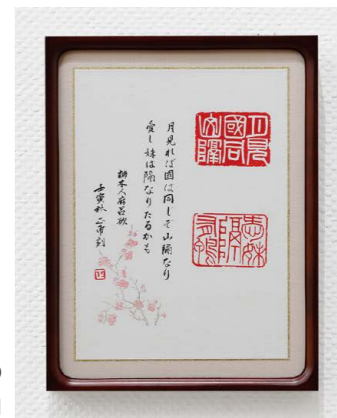 月見國同山隔
愛妹隔有鴨
月見れば國は同じそ山隔なり
愛し妹は隔なりたるかも
柿本人麻呂歌
壬寅秋